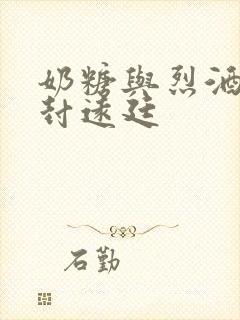 奶糖與烈酒
封遠廷
石勤